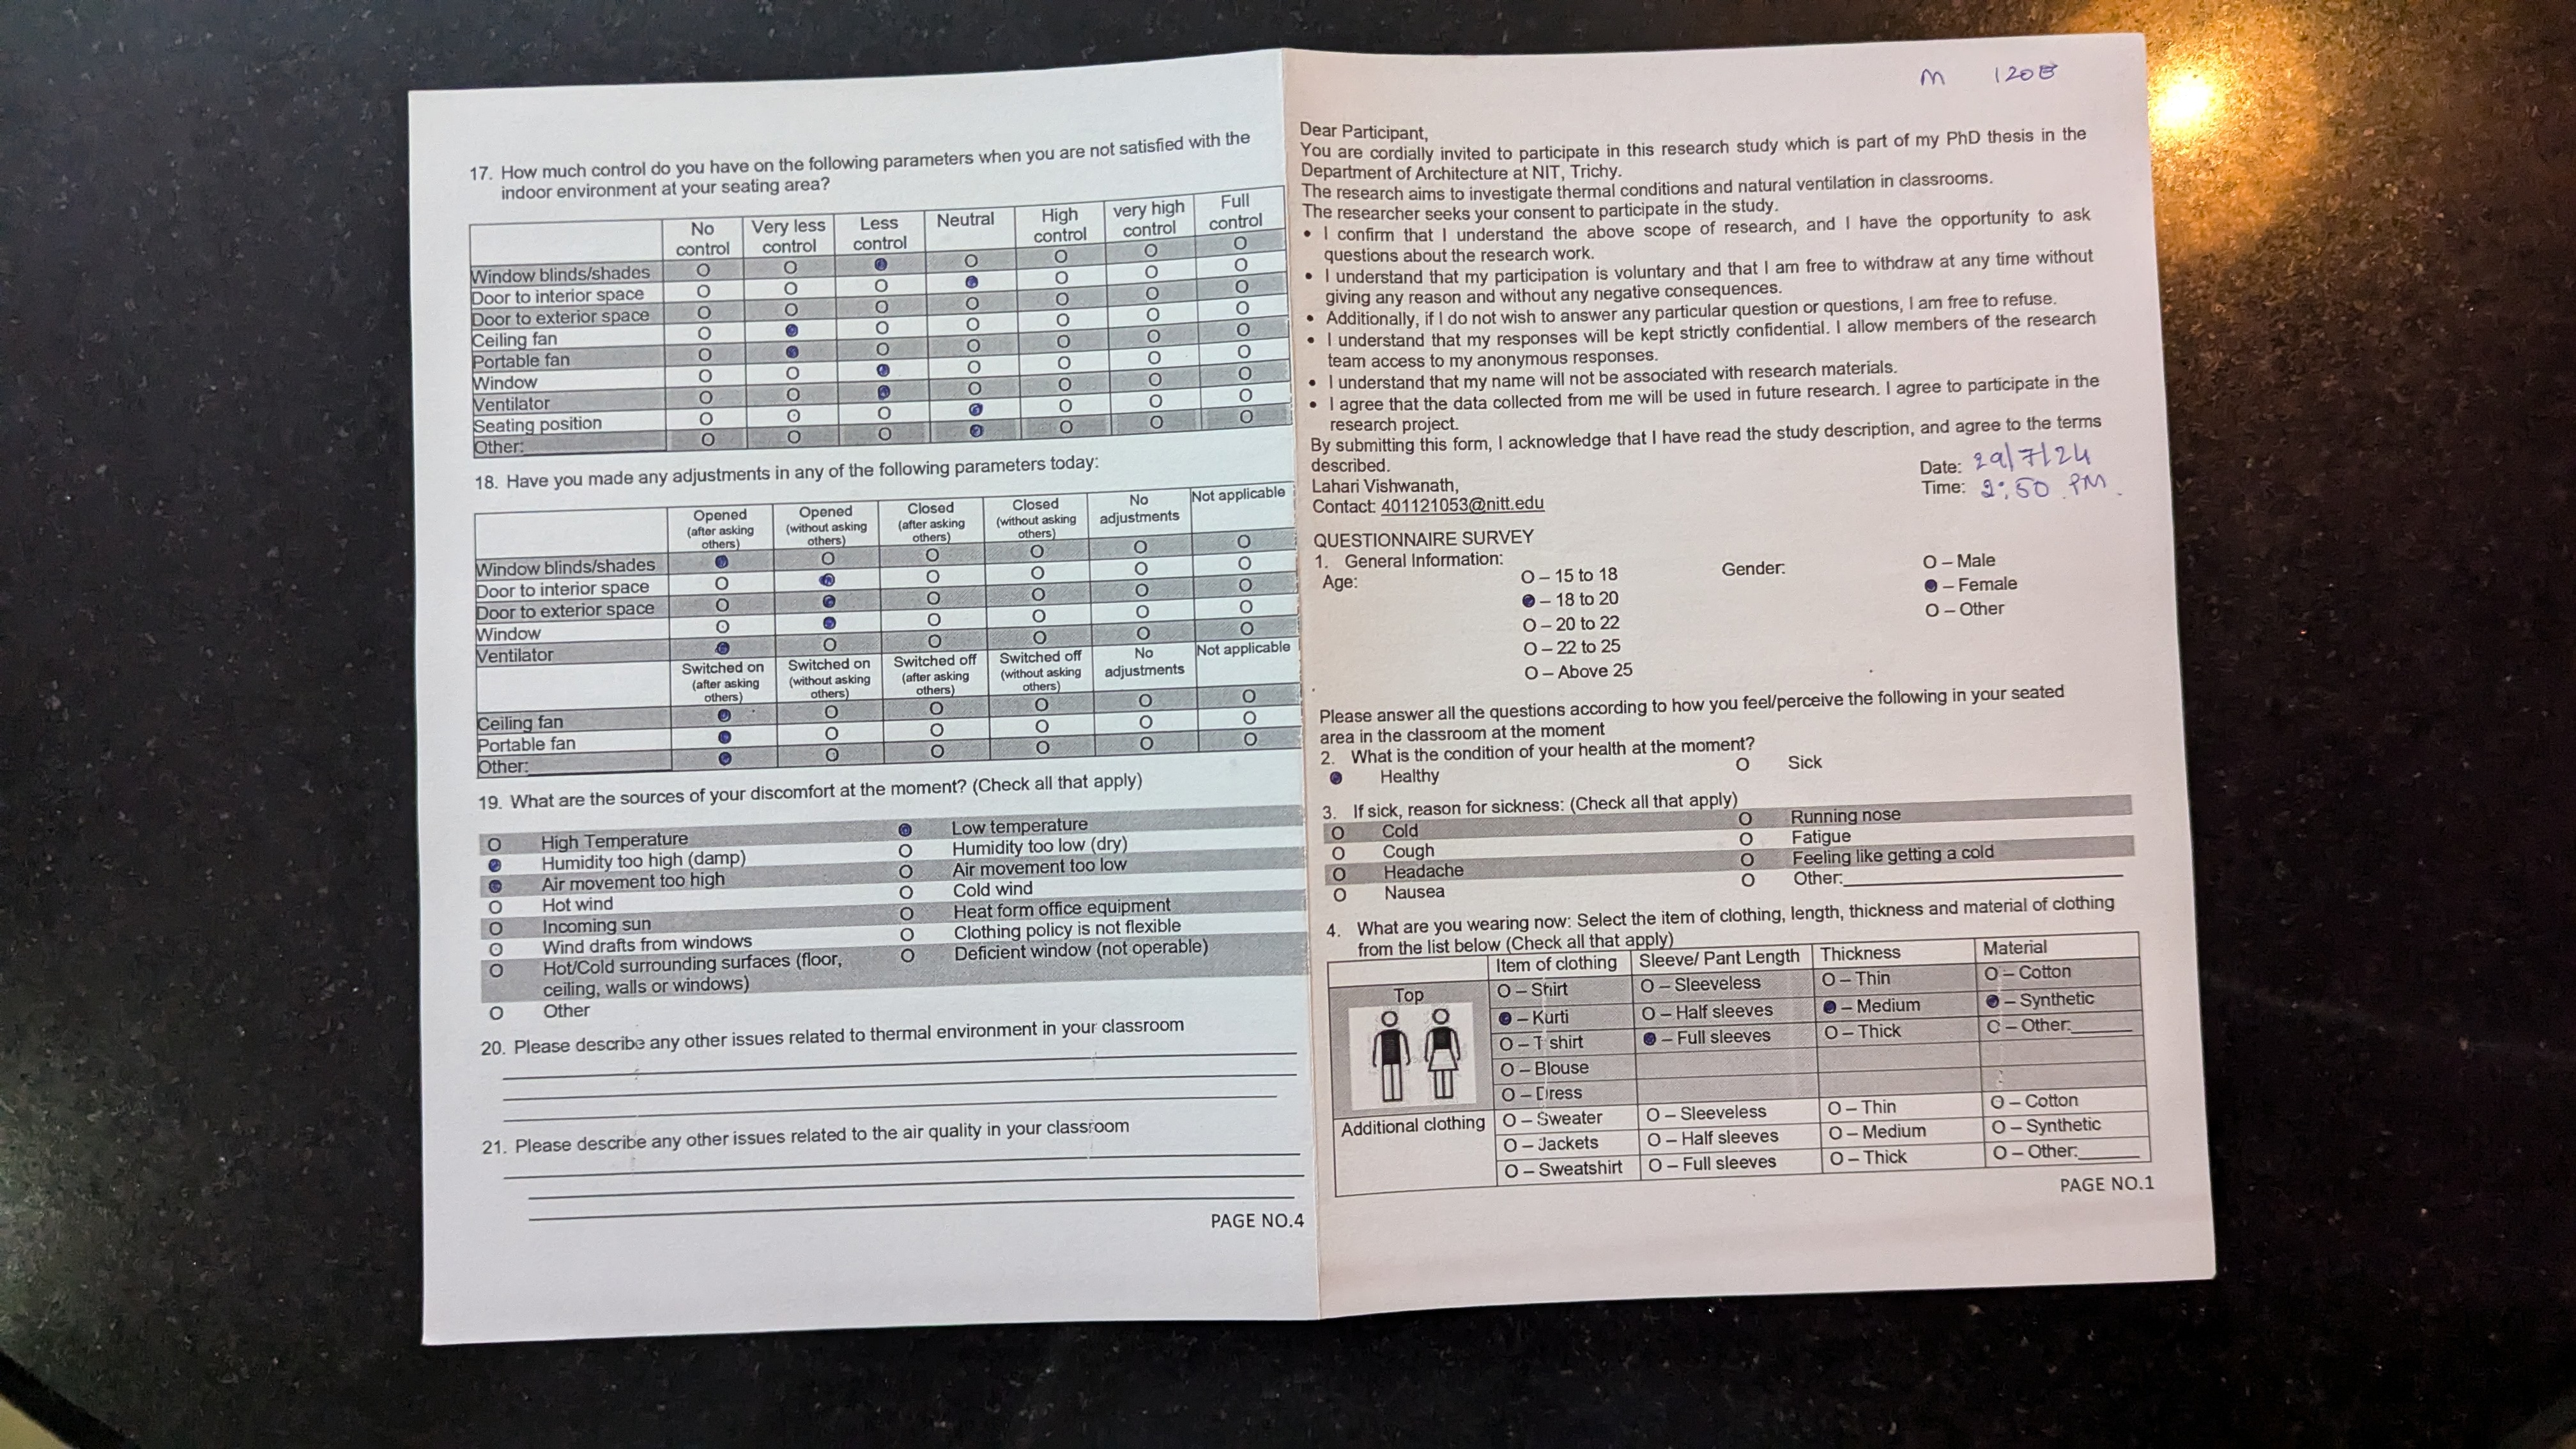 17. How much control do you have on the following parameters when you are not satisfied with the
indoor environment at your seating area?
No control Very less control Less control Neutral High control very high control Full control
Window blinds/shades O O ● O O O O
Door to interior space O O O ● O O O
Door to exterior space O O O O O O O
Ceiling fan O ● O O O O O
Portable fan O ● O O O O O
Window O O ● O O O O
Ventilator O O ● O O O O
Seating position O O O ● O O O
Other: O O O ● O O O
18. Have you made any adjustments in any of the following parameters today:
Opened (after asking others) Opened (without asking others) Closed (after asking others) Closed (without asking others) No adjustments Not applicable
Window blinds/shades ● O O O O O
Door to interior space O ● O O O O
Door to exterior space O ● O O O O
Window O ● O O O O
Ventilator ● O O O O O
Switched on (after asking others) Switched on (without asking others) Switched off (after asking others) Switched off (without asking others) No adjustments Not applicable
Ceiling fan ● O O O O O
Portable fan ● O O O O O
Other: ● O O O O O
19. What are the sources of your discomfort at the moment? (Check all that apply)
O High Temperature ● Low temperature
● Humidity too high (damp) O Humidity too low (dry)
● Air movement too high O Air movement too low
O Hot wind O Cold wind
O Incoming sun O Heat form office equipment
O Wind drafts from windows O Clothing policy is not flexible
O Hot/Cold surrounding surfaces (floor, O Deficient window (not operable)
ceiling, walls or windows)
O Other
20. Please describe any other issues related to thermal environment in your classroom
21. Please describe any other issues related to the air quality in your classroom
PAGE NO.4
M 120B
Dear Participant,
You are cordially invited to participate in this research study which is part of my PhD thesis in the
Department of Architecture at NIT, Trichy.
The research aims to investigate thermal conditions and natural ventilation in classrooms.
The researcher seeks your consent to participate in the study.
• I confirm that I understand the above scope of research, and I have the opportunity to ask
questions about the research work.
• I understand that my participation is voluntary and that I am free to withdraw at any time without
giving any reason and without any negative consequences.
• Additionally, if I do not wish to answer any particular question or questions, I am free to refuse.
• I understand that my responses will be kept strictly confidential. I allow members of the research
team access to my anonymous responses.
• I understand that my name will not be associated with research materials.
• I agree that the data collected from me will be used in future research. I agree to participate in the
research project.
By submitting this form, I acknowledge that I have read the study description, and agree to the terms
described.
Lahari Vishwanath,
Contact: 401121053@nitt.edu
Date: 29/7/24
Time: 2:50 PM.
QUESTIONNAIRE SURVEY
1. General Information:
Age:
O – 15 to 18
● – 18 to 20
O – 20 to 22
O – 22 to 25
O – Above 25
Gender:
O – Male
● – Female
O – Other
Please answer all the questions according to how you feel/perceive the following in your seated
area in the classroom at the moment
2. What is the condition of your health at the moment?
● Healthy O Sick
3. If sick, reason for sickness: (Check all that apply)
O Cold O Running nose
O Cough O Fatigue
O Headache O Feeling like getting a cold
O Nausea O Other:
4. What are you wearing now: Select the item of clothing, length, thickness and material of clothing
from the list below (Check all that apply)
Item of clothing Sleeve/ Pant Length Thickness Material
Top
O – Shirt O – Sleeveless O – Thin O – Cotton
● – Kurti O – Half sleeves ● – Medium ● – Synthetic
O – T shirt ● – Full sleeves O – Thick O – Other:
O – Blouse
O – Dress
Additional clothing
O – Sweater O – Sleeveless O – Thin O – Cotton
O – Jackets O – Half sleeves O – Medium O – Synthetic
O – Sweatshirt O – Full sleeves O – Thick O – Other:
PAGE NO.1